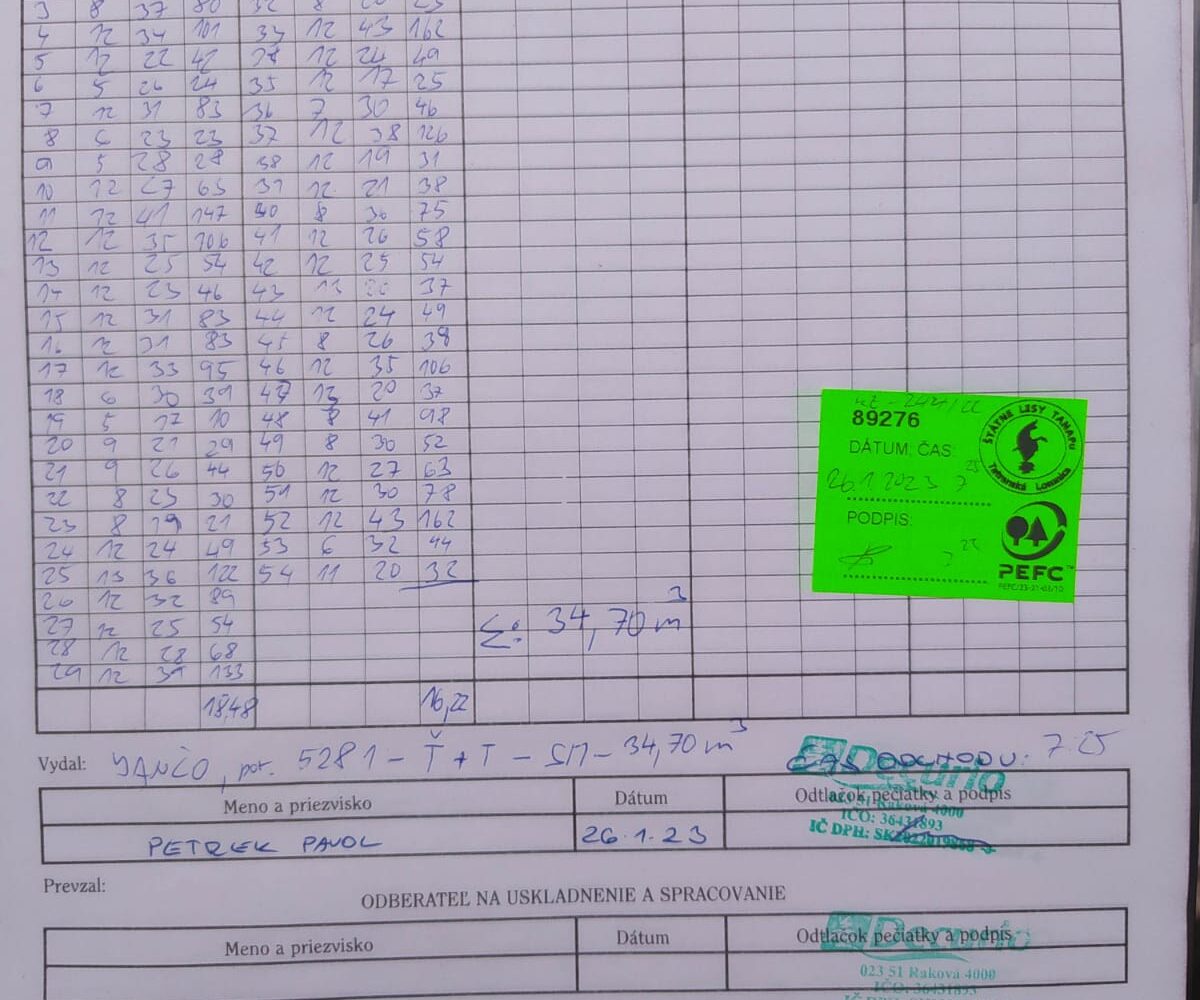 3 8 37 80 32 8 20 25
4 12 34 101 33 12 43 162
5 12 22 42 34 12 24 49
6 5 26 24 35 12 17 25
7 12 31 83 36 7 30 46
8 6 23 23 37 12 38 126
9 5 28 28 38 12 19 31
10 12 27 65 39 12 21 38
11 12 41 147 40 8 36 75
12 12 35 106 41 12 26 58
13 12 25 54 42 12 25 54
14 12 23 46 43 13 20 37
15 12 31 83 44 12 24 49
16 12 31 83 45 8 26 39
17 12 33 95 46 12 35 106
18 6 30 39 47 13 20 37
19 5 17 10 48 8 41 98
20 9 21 29 49 8 30 52
21 9 26 44 50 12 27 63
22 8 23 30 51 12 30 78
23 8 19 21 52 12 43 162
24 12 24 49 53 6 32 44
25 13 36 122 54 11 20 32
26 12 32 89
27 12 25 54
28 12 28 68
29 12 39 133
Σ: 34,70 m³
18,48 16,22
89276
DÁTUM, ČAS:
26.1.2023 7 25
PODPIS:
7 25
ŠTÁTNE LESY TANAPU
Tatranská Lomnica
PEFC™
Vydal: JANČO, por. 5281 - Ť + T - SM - 34,70 m³
ČAS ODCHODU: 7.25
Decurio
Meno a priezvisko Dátum Odtlačok pečiatky a podpis
023 51 Raková 4000
IČO: 36431893
IČ DPH:
PETREK PAVOL 26.1.23
Prevzal:
ODBERATEĽ NA USKLADNENIE A SPRACOVANIE
Meno a priezvisko Dátum Odtlačok pečiatky a podpis
Decurio
023 51 Raková 4000
IČO: 36431893